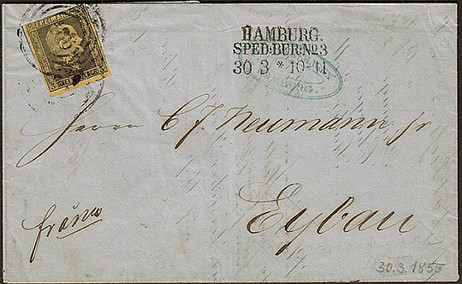 HAMBURG.
SPED:BUR:No3
30 3 * 10-11
Herrn C F Neumann jr
franco
Eybau
30.3.1855